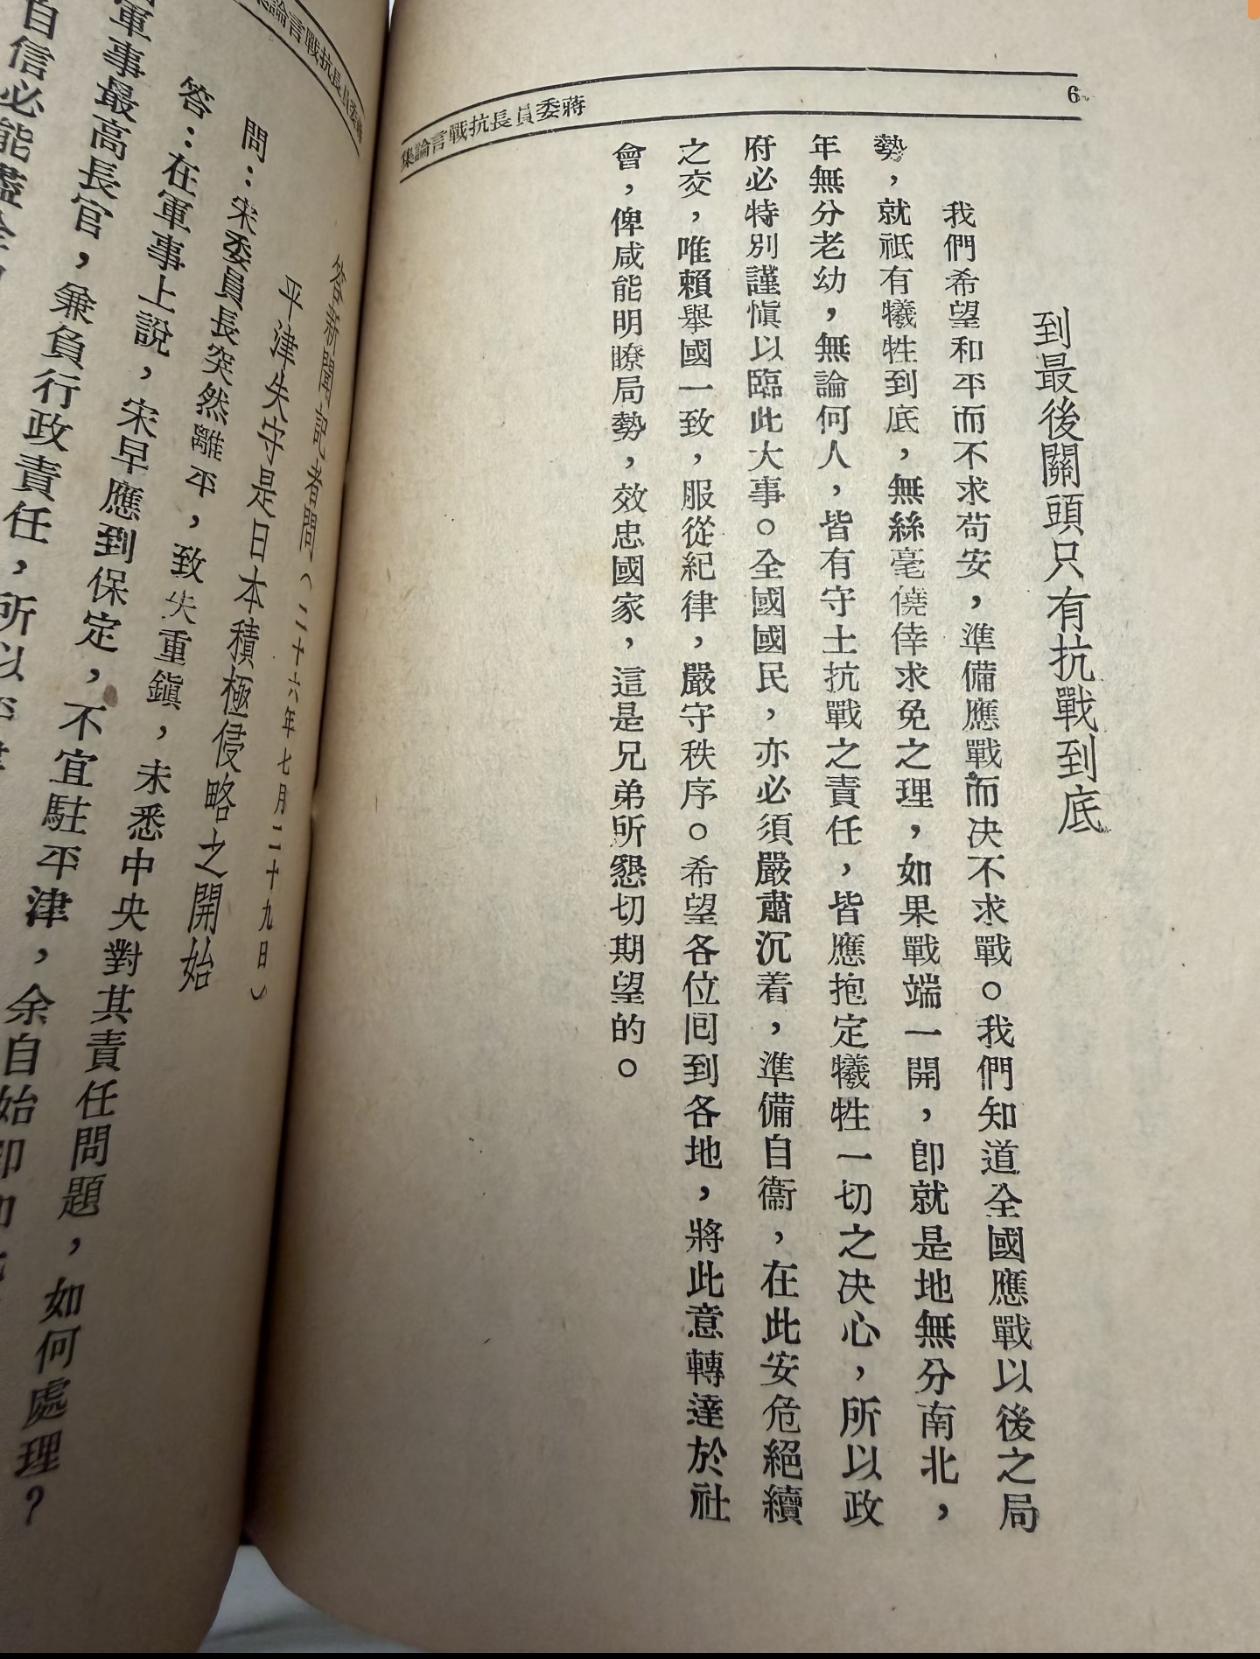 6
蔣委員長抗戰言論集
到最後關頭只有抗戰到底
我們希望和平而不求苟安，準備應戰而决不求戰。我們知道全國應戰以後之局
勢，就祇有犧牲到底，無絲毫僥倖求免之理，如果戰端一開，卽就是地無分南北，
年無分老幼，無論何人，皆有守土抗戰之責任，皆應抱定犧牲一切之决心，所以政
府必特別謹愼以臨此大事。全國國民，亦必須嚴肅沉着，準備自衞，在此安危絕續
之交，唯賴舉國一致，服從紀律，嚴守秩序。希望各位囘到各地，將此意轉達於社
會，俾咸能明瞭局勢，效忠國家，這是兄弟所懇切期望的。
蔣委員長抗戰言論集
答新聞記者問（二十六年七月二十九日）
平津失守是日本積極侵略之開始
問：宋委員長突然離平，致失重鎭，未悉中央對其責任問題，如何處理？
答：在軍事上說，宋早應到保定，不宜駐平津，余自始卽
軍事最高長官，兼負行政責任，所以平津
自信必能盡全